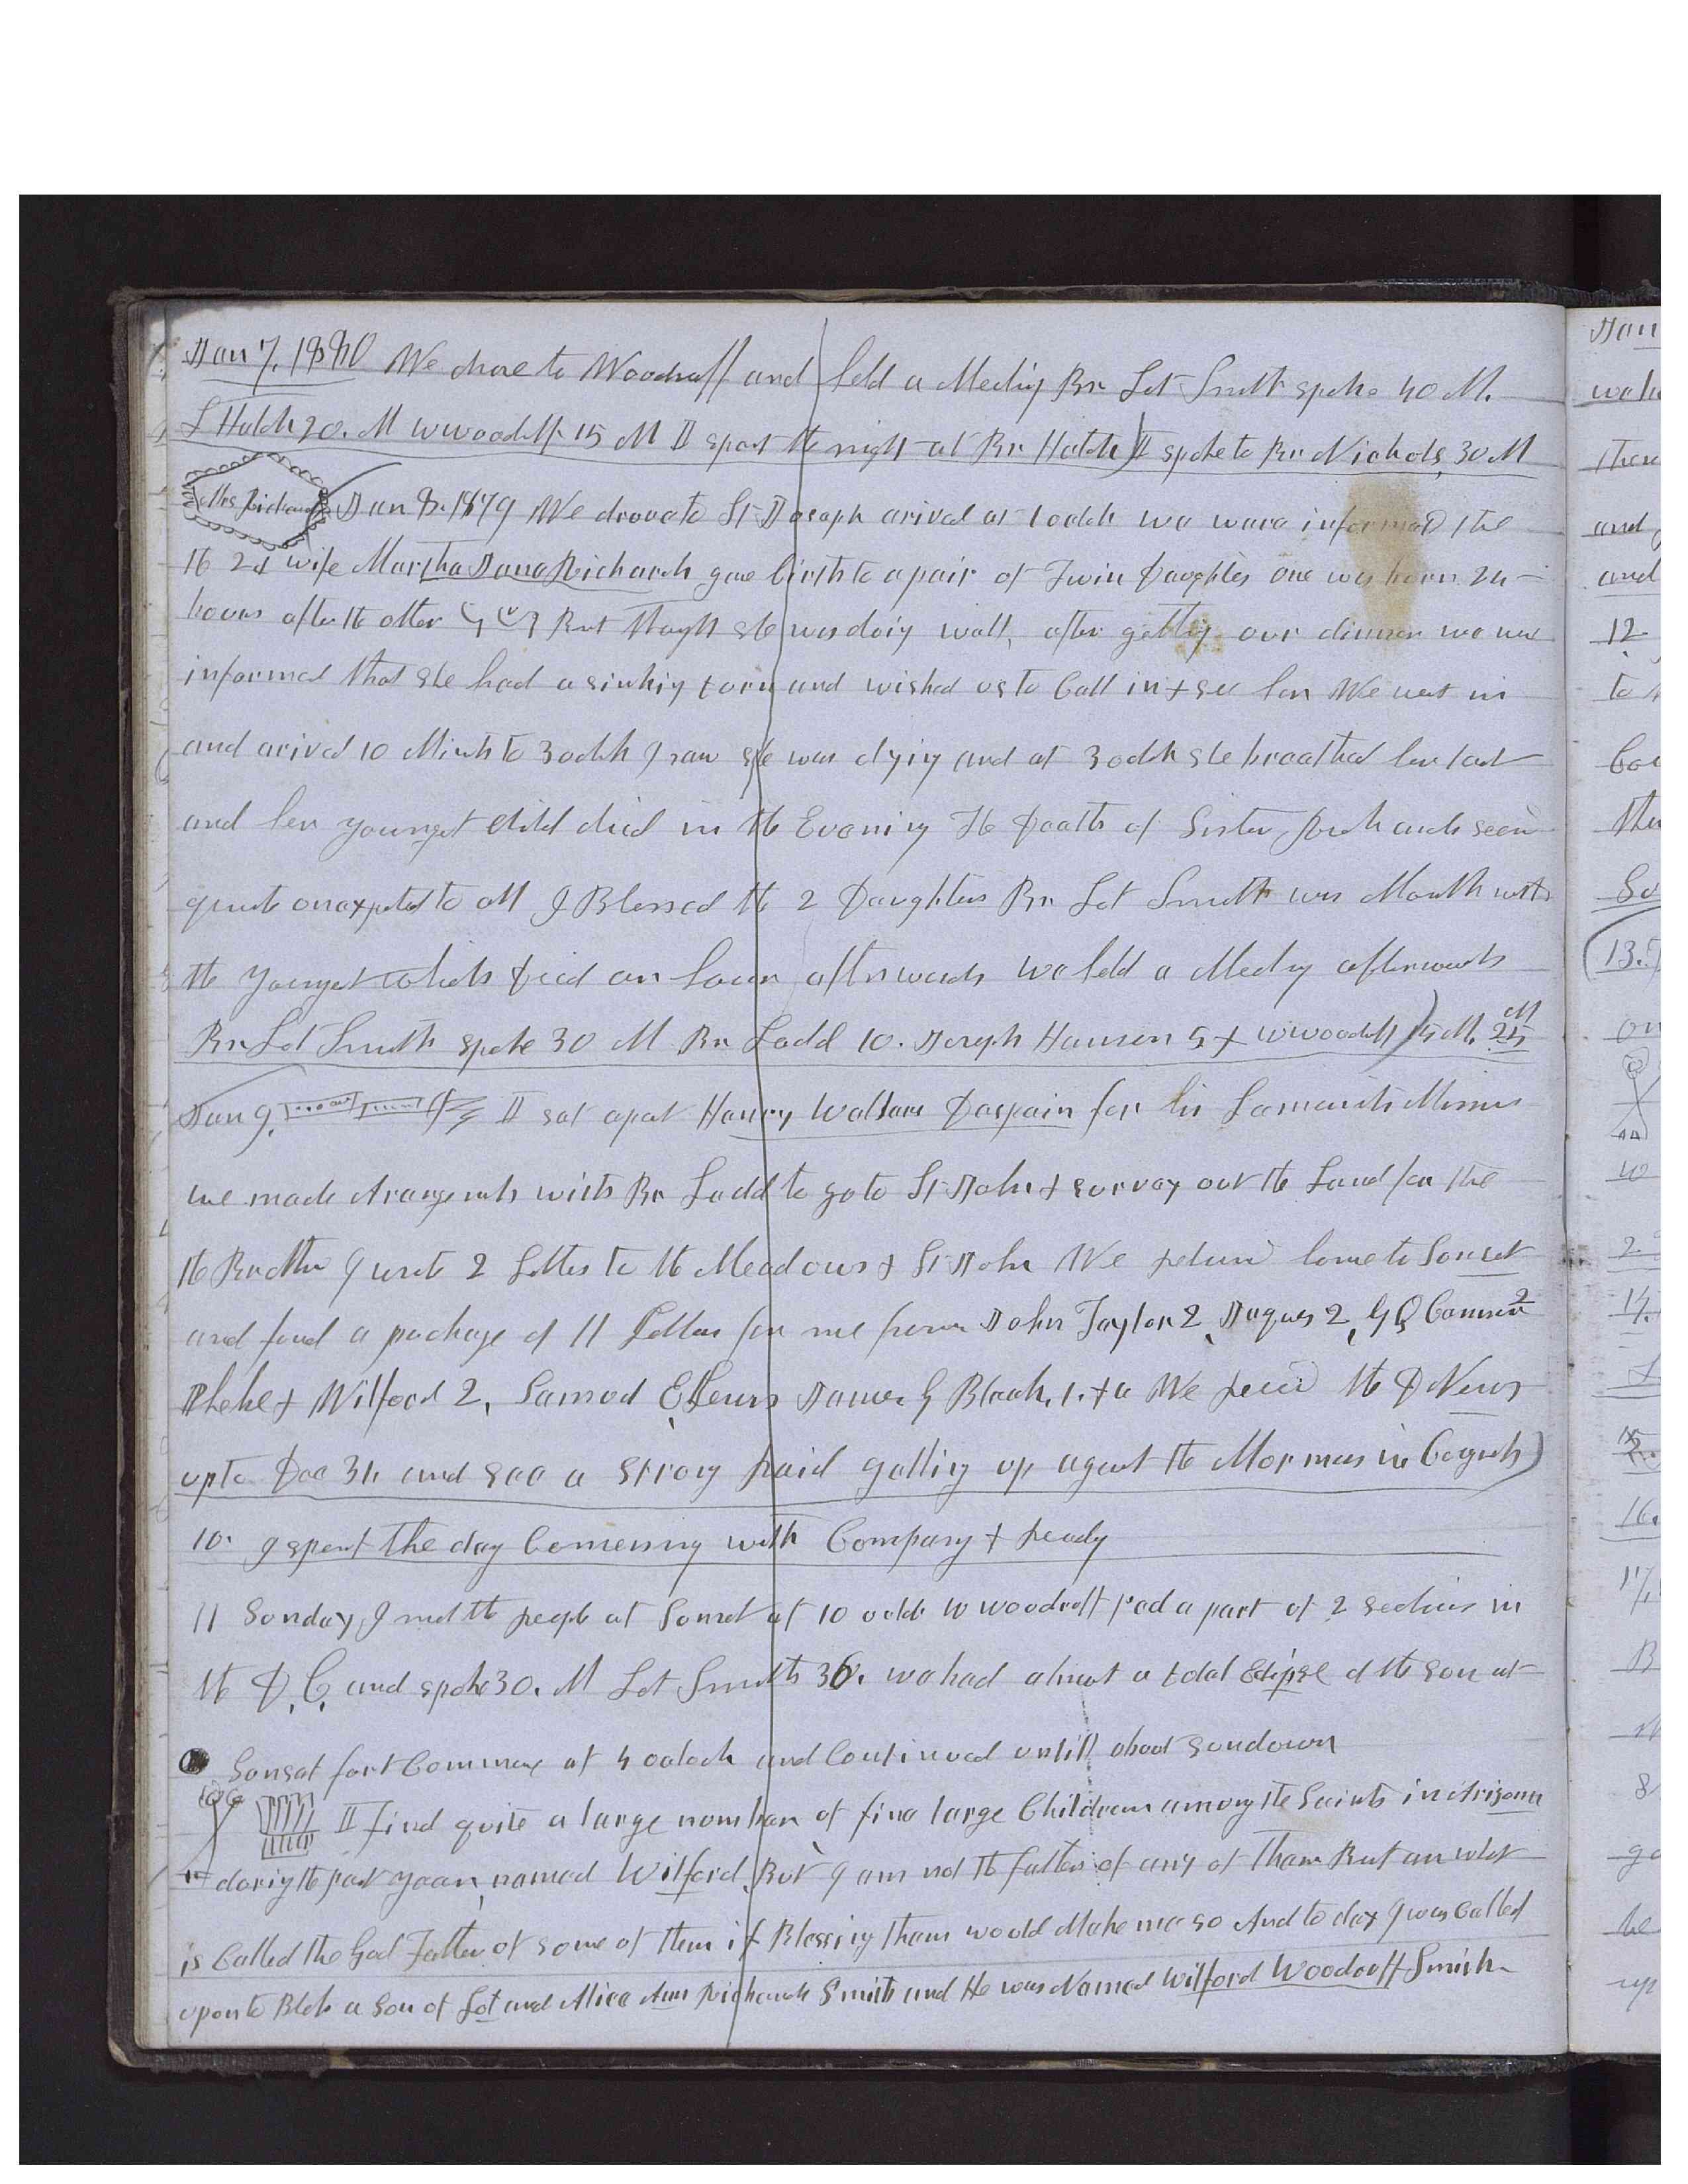 Jan 7, 1880 We drove to Woodruff and held a Meeting Br Lot Smith spoke 40 M.
L Hatch 20. M W Woodruff 15 M I spent the night at Br Hatch I spoke to Br Nichols 30 M
Mrs Richards Jan 8. 1879 We drove to St Joseph arived at 1 oclok we ware informed the
the 2d wife Martha Jane Richards gave birth to a pair of Twin Daughters one was born 24
hours after the other But thought she was doing well, after getting our dinner we were
informed that she had a sinking turn and wished us to Call in & see her We went in
and arived 10 Minuts to 3 oclok I saw she was dying and at 3 oclok she breathed her last
and her youngest child died in the Evening The Death of Sister Richards seem
quite unexpeted to all I Blessed the 2 Daughters Br Lot Smith was Mouth with
the youngest which died an hour afterwards we held a Meeting afterwards
Br Lot Smith spoke 30 M Br Ladd 10. Joseph Hansen 5, & W Woodruff 15 M. 25 M
Jan 9. I set apart Henry Wallace Despain for his Lamanite Mission
we made Arangements with Br Ladd to go to St John & survey out the Land for the
the Brethren I wrote 2 Letters to the Meadows & St John We returned home to Sunset
and found a package of 11 Letters for me from John Taylor 2, Jaques 2, G Q Cannon 2
Phebe & Wilford 2, Samuel E Lewis James G Bleak, 1. &c We recived the D News
up to Dec 31, and see a strong raid getting up against the Mormons in Congress
10. I spent the day Conversing with Company & reading
11 Sunday, I met the people at Sunset at 10 oclok W Woodruff read a part of 2 sections in
the D, C, and spoke 30. M Lot Smith 36. we had almost a total Eclipse of the sun at
Sunset fort Commencing at 4 oclock and Continued untill about sundown
I find quite a large number of fine large Children among the Saints in Arizona
during the past year, named Wilford, But I am not the father of any of them But am what
is Called the God Father of some of them if Blessing them would Make me so And to day I was Called
upon to Bless a Son of Lot and Alice Ann Richards Smith and He was Named Wilford Woodruff Smith